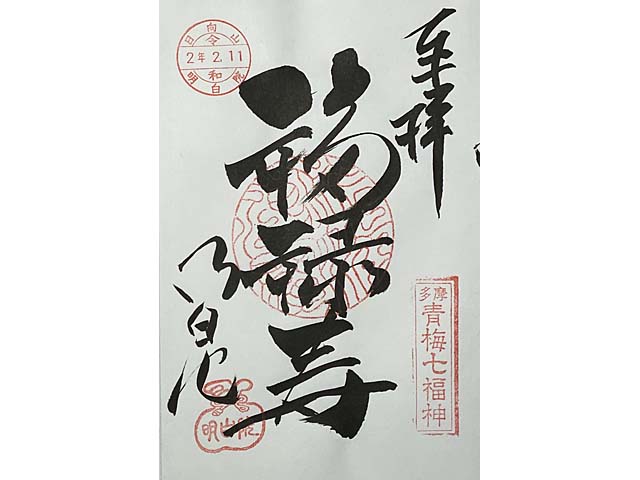 奉拝
多摩
青梅七福神
福禄寿
日向山
令
2年2.11
和
明白院
明白院
明白院